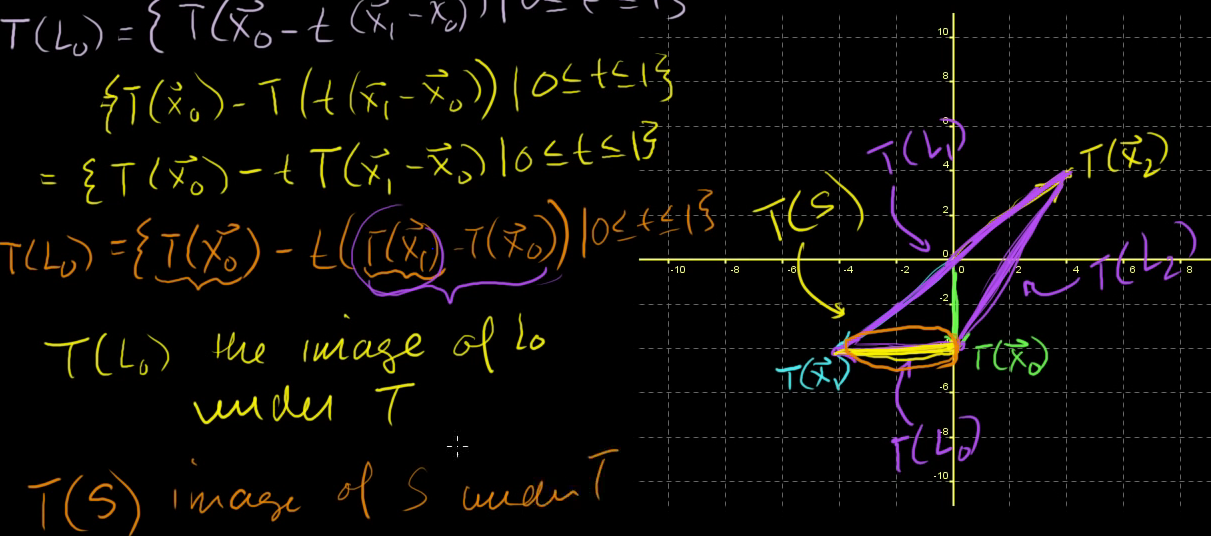 T(L₀) = { T(x⃗₀ - t (x⃗₁ - x₀)) | 0 ≤ t ≤ 1}
{T(x⃗₀) - T(t(x⃗₁ - x⃗₀)) | 0 ≤ t ≤ 1}
= { T(x⃗₀) - t T(x⃗₁ - x⃗₀) | 0 ≤ t ≤ 1}
T(L₀) = { T(x⃗₀) - t(T(x⃗₁) - T(x⃗₀)) | 0 ≤ t ≤ 1}
T(L₀) the image of L₀
under T
T(S) image of S under T
10
8
6
4
2
0
-2
-6
-8
-10
-10 -8 -6 -4 -2 0 2 4 6 8
T(L₁)
T(x⃗₂)
T(S)
T(L₂)
T(x⃗₁)
T(x⃗₀)
T(L₀)